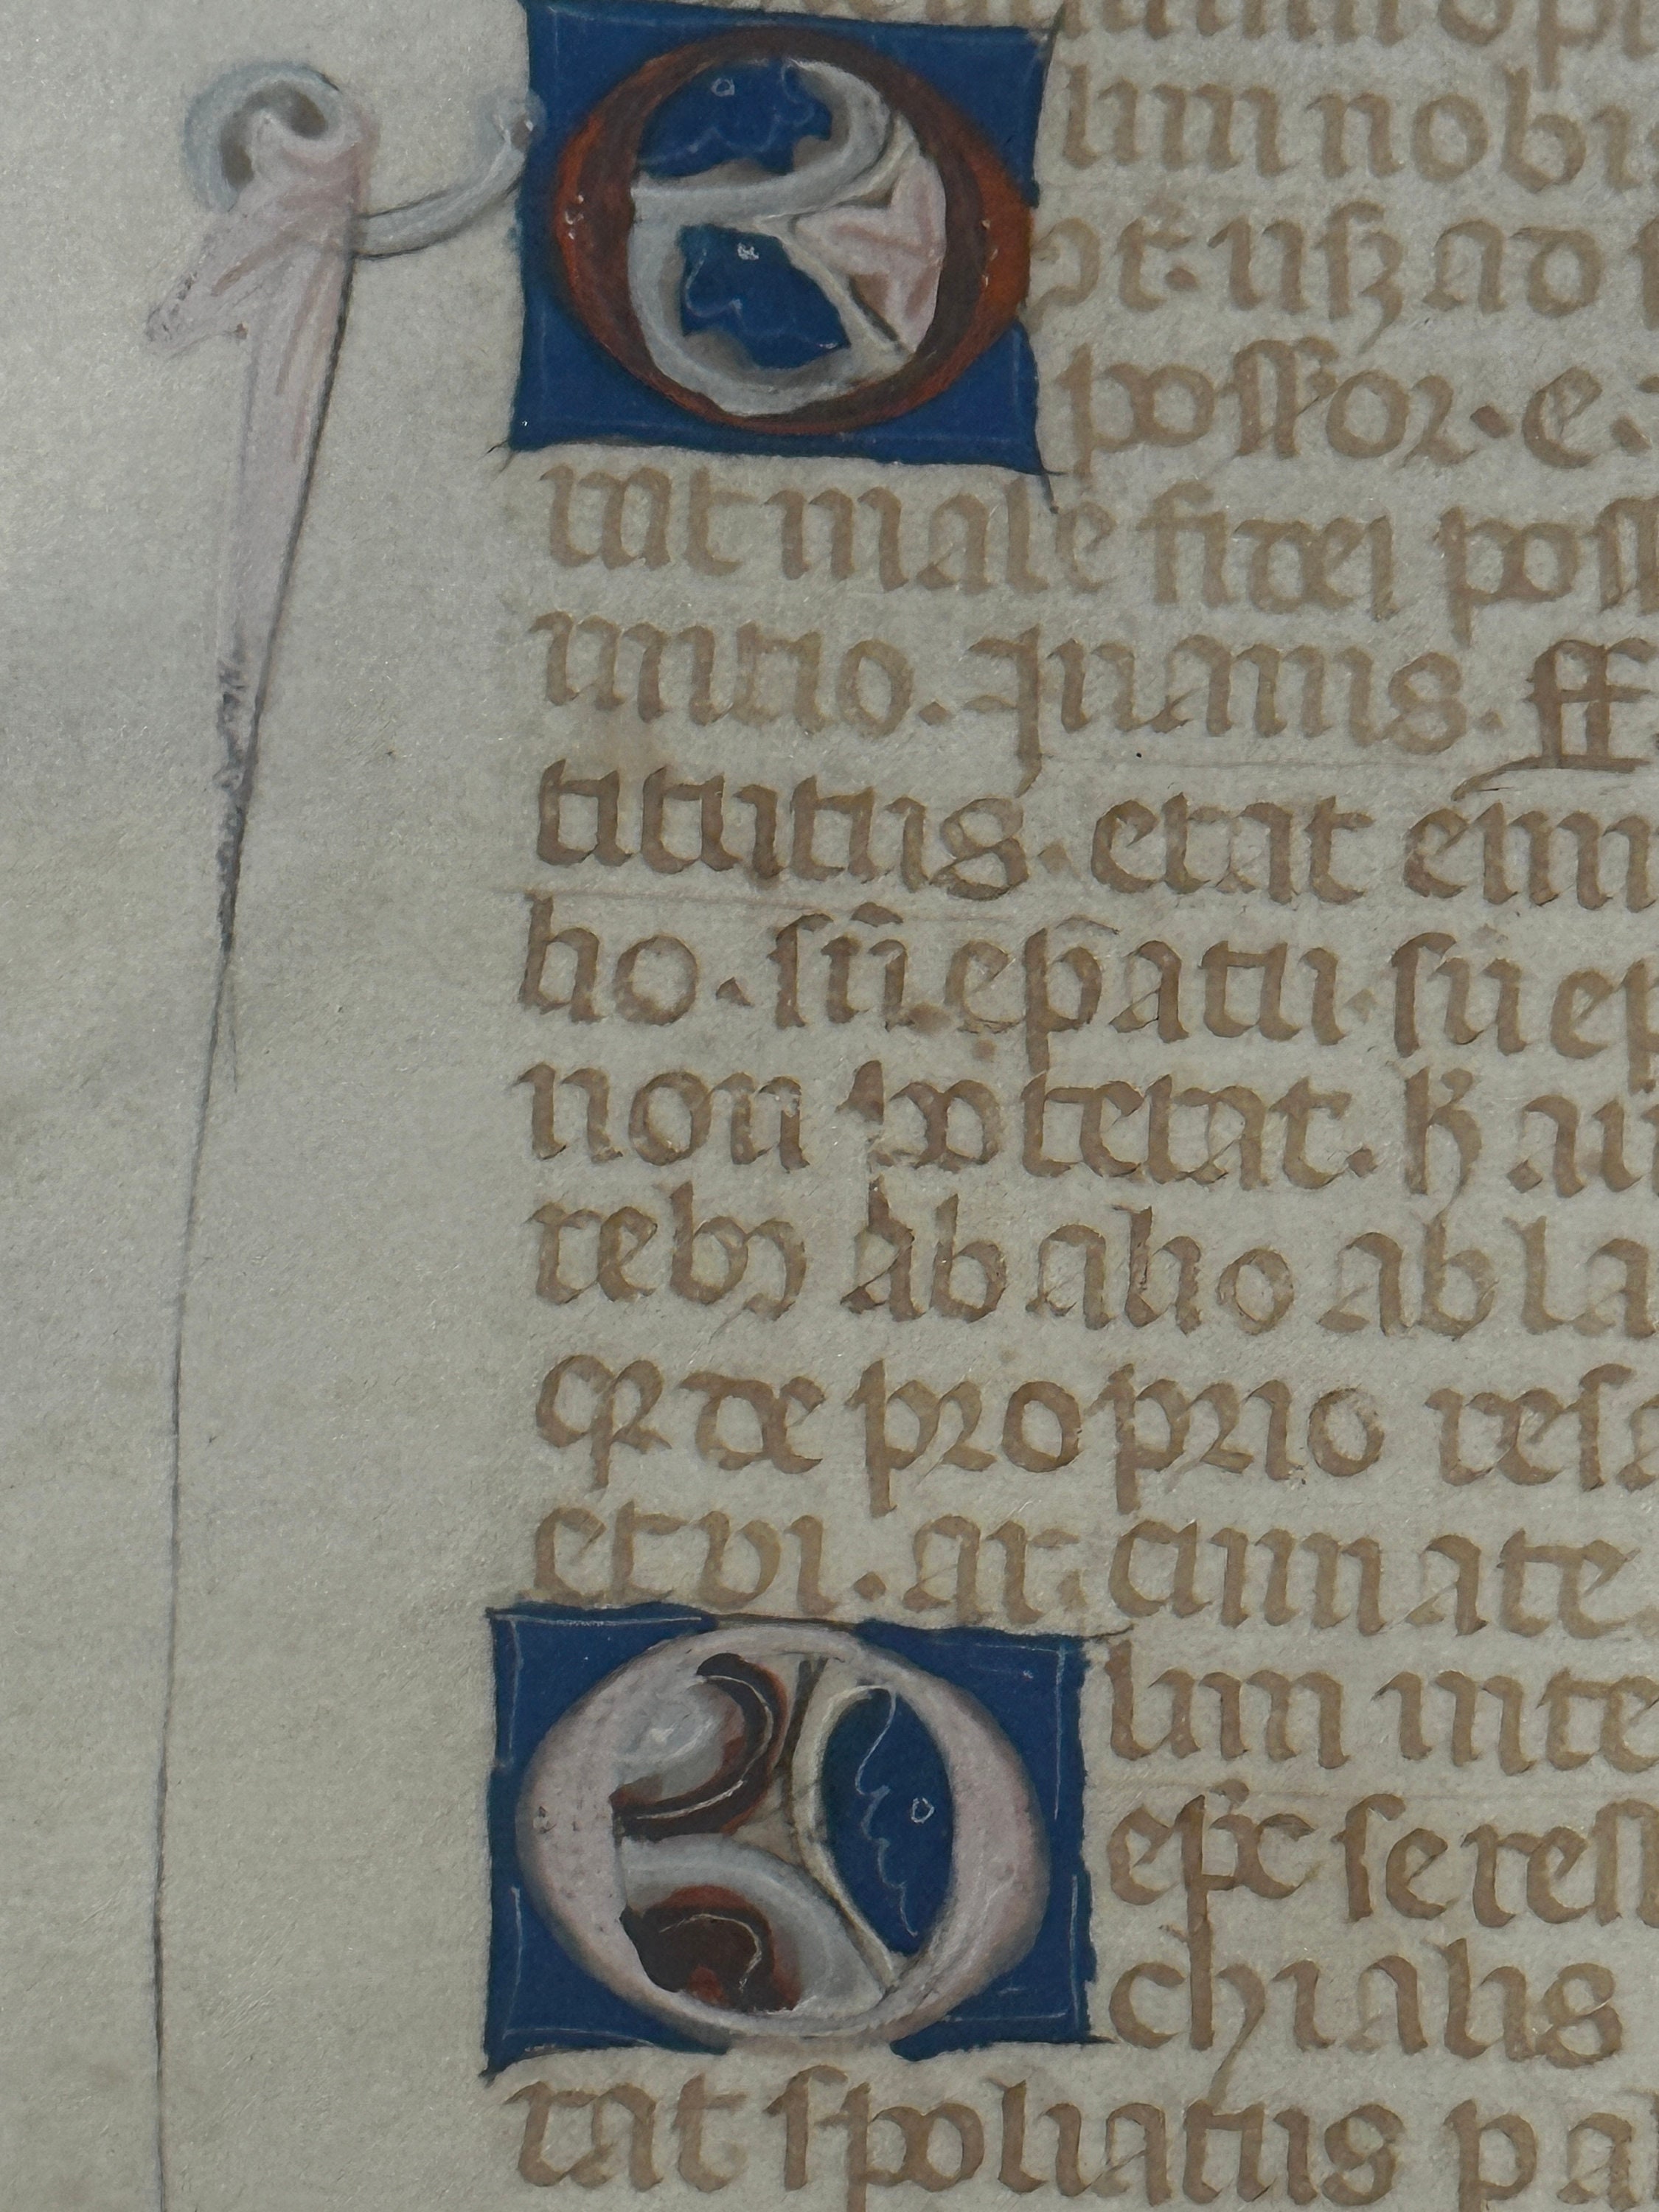 O lim nobis
possor. e.
rat male fidei poss
initio. quamis. ff
titutus. erat enim
ho. sū epatu. sū ep
non poterat. h̄ au
rebꝫ ab alio abla
qꝛ de proprio resa
et vi. ar. cum ate
O lim inte
epc̄ se rest
chialis
rat spoliatus pa